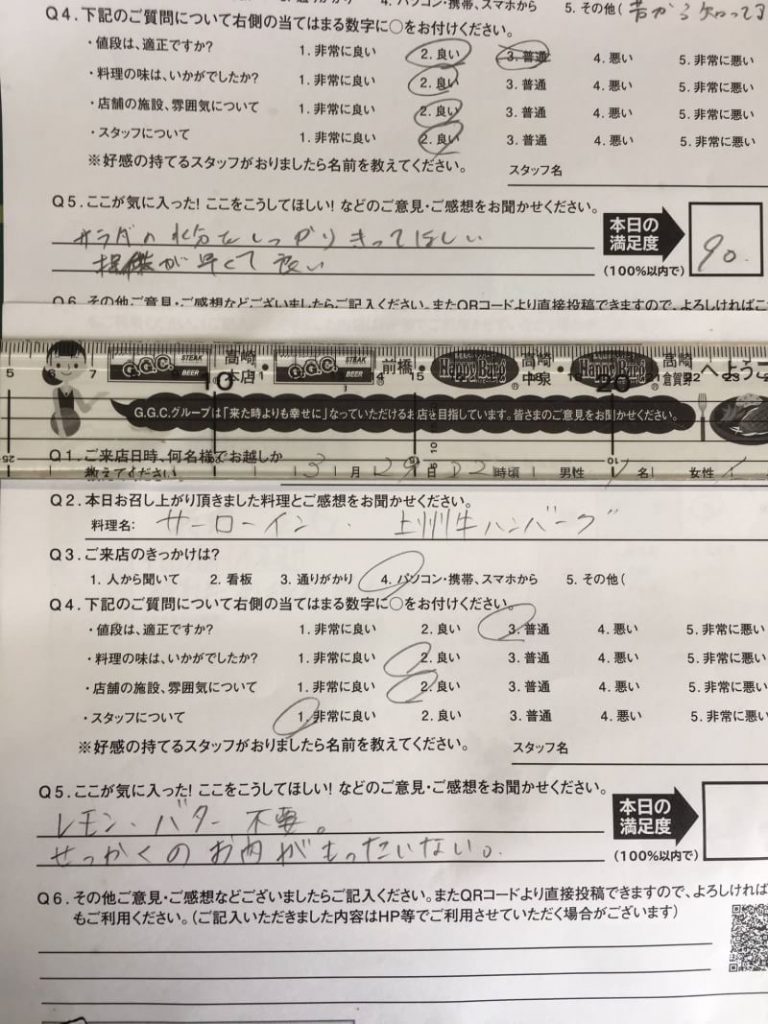 4. パソコン・携帯、スマホから 5. その他( 昔から知ってる
Q4. 下記のご質問について右側の当てはまる数字に○をお付けください。
・値段は、適正ですか? 1. 非常に良い 2. 良い 3. 普通 4. 悪い 5. 非常に悪い
・料理の味は、いかがでしたか? 1. 非常に良い 2. 良い 3. 普通 4. 悪い 5. 非常に悪い
・店舗の施設、雰囲気について 1. 非常に良い 2. 良い 3. 普通 4. 悪い 5. 非常に悪い
・スタッフについて 1. 非常に良い 2. 良い 3. 普通 4. 悪い 5. 非常に悪い
※好感の持てるスタッフがおりましたら名前を教えてください。 スタッフ名
Q5. ここが気に入った! ここをこうしてほしい! などのご意見・ご感想をお聞かせください。
本日の満足度
(100%以内で)
90.
サラダの水分をしっかりきってほしい
提供が早くて良い
Q6. その他ご意見・ご感想などございましたらご記入ください。またQRコードより直接投稿できますので、よろしければこ
G.G.C. STEAK BEER 高崎本店・ G.G.C. STEAK BEER 前橋・ Happy Burg 高崎中泉・ Happy Burg 高崎倉賀野 へようこ
G.G.C.グループは「来た時よりも幸せに」なっていただけるお店を目指しています。皆さまのご意見をお聞かせください。
Q1. ご来店日時、何名様でお越しか教えてください。 3月29日 時頃 男性 1名 女性 1
Q2. 本日お召し上がり頂きました料理とご感想をお聞かせください。
料理名: サーローイン . 上州牛ハンバーグ
Q3. ご来店のきっかけは?
1. 人から聞いて 2. 看板 3. 通りがかり 4. パソコン・携帯、スマホから 5. その他(
Q4. 下記のご質問について右側の当てはまる数字に○をお付けください。
・値段は、適正ですか? 1. 非常に良い 2. 良い 3. 普通 4. 悪い 5. 非常に悪い
・料理の味は、いかがでしたか? 1. 非常に良い 2. 良い 3. 普通 4. 悪い 5. 非常に悪い
・店舗の施設、雰囲気について 1. 非常に良い 2. 良い 3. 普通 4. 悪い 5. 非常に悪い
・スタッフについて 1. 非常に良い 2. 良い 3. 普通 4. 悪い 5. 非常に悪い
※好感の持てるスタッフがおりましたら名前を教えてください。 スタッフ名
Q5. ここが気に入った! ここをこうしてほしい! などのご意見・ご感想をお聞かせください。
本日の満足度
(100%以内で)
レモン・バター 不要。
せっかくのお肉がもったいない。
Q6. その他ご意見・ご感想などございましたらご記入ください。またQRコードより直接投稿できますので、よろしければ
もご利用ください。(ご記入いただきました内容はHP等でご利用させていただく場合がございます)